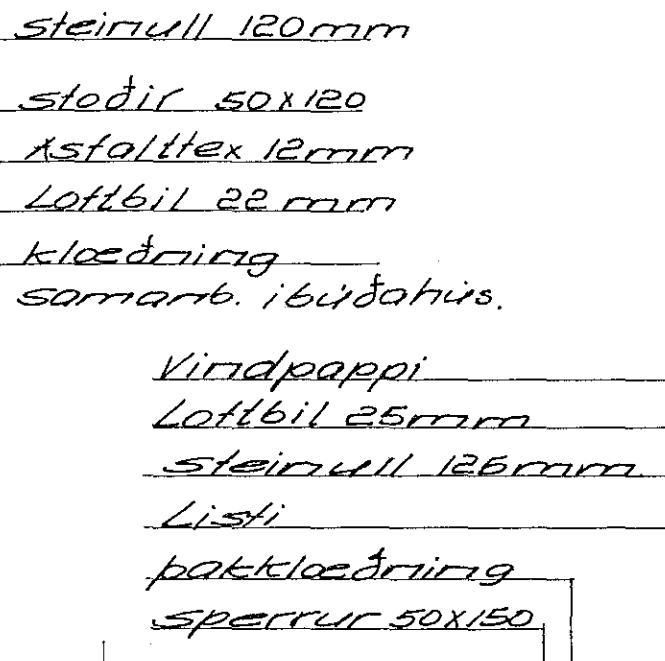 steinull 120mm
stoðir 50x120
Asfalttex 12mm
Loftbil 22 mm
klæðning
samanb. ibúðahús.
Vindpappi
Loftbil 25mm
steinull 125mm
Listi
þakklæðning
sperrur 50x150